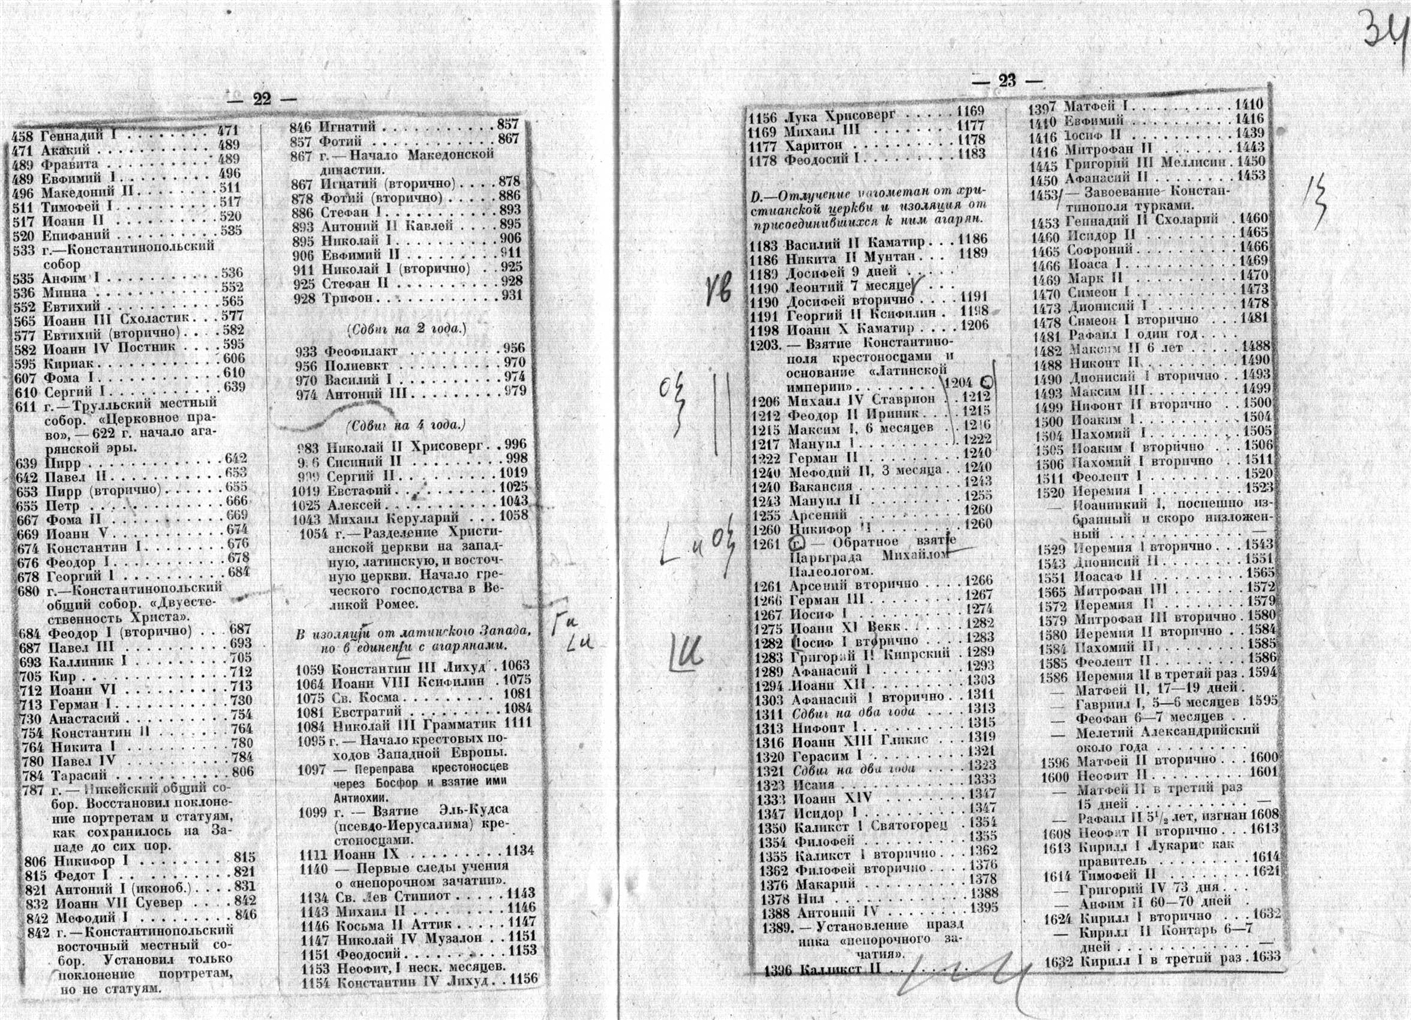 34
— 22 —
458 Геннадий I . . . . . . . . 471
471 Акакий . . . . . . . . . . 489
489 Фравита . . . . . . . . . . 489
489 Евфимий I . . . . . . . . . 496
496 Македоний II . . . . . . . . 511
511 Тимофей I . . . . . . . . . 517
517 Иоанн II . . . . . . . . . . 520
520 Епифаний . . . . . . . . . 535
533 г.—Константинопольский
собор
535 Анфим I . . . . . . . . . . 536
536 Минна . . . . . . . . . . . 552
552 Евтихий . . . . . . . . . . 565
565 Иоанн III Схоластик . . . 577
577 Евтихий (вторично) . . . . 582
582 Иоанн IV Постник . . . . 595
595 Кириак . . . . . . . . . . 606
607 Фома I . . . . . . . . . . . 610
610 Сергий I . . . . . . . . . . 639
611 г.—Трулльский местный
собор. «Церковное пра-
во», — 622 г. начало ага-
рянской эры.
639 Пирр . . . . . . . . . . . 642
642 Павел II . . . . . . . . . . 653
653 Пирр (вторично) . . . . . . 655
655 Петр . . . . . . . . . . . 666
667 Фома II . . . . . . . . . . 669
669 Иоанн V . . . . . . . . . . 674
674 Константин I . . . . . . . . 676
676 Феодор I . . . . . . . . . . 678
678 Георгий I . . . . . . . . . 684
680 г.—Константинопольский
общий собор. «Двуесте-
ственность Христа».
684 Феодор I (вторично) . . . 687
687 Павел III . . . . . . . . . 693
693 Каллиник I . . . . . . . . 705
705 Кир . . . . . . . . . . . . 712
712 Иоанн VI . . . . . . . . . 713
713 Герман I . . . . . . . . . . 730
730 Анастасий . . . . . . . . . 754
754 Константин II . . . . . . . 764
764 Никита I . . . . . . . . . . 780
780 Павел IV . . . . . . . . . 784
784 Тарасий . . . . . . . . . . 806
787 г. — Никейский общий со-
бор. Восстановил поклоне-
ние портретам и статуям,
как сохранилось на За-
паде до сих пор.
806 Никифор I . . . . . . . . 815
815 Федот I . . . . . . . . . . 821
821 Антоний I (иконоб.) . . . . 831
832 Иоанн VII Суевер . . . . 842
842 Мефодий I . . . . . . . . 846
842 г. —Константинопольский
восточный местный со-
бор. Установил только
поклонение портретам,
но не статуям.
846 Игнатий . . . . . . . . . . 857
857 Фотий . . . . . . . . . . . 867
867 г. — Начало Македонской
династии.
867 Игнатий (вторично) . . . . 878
878 Фотий (вторично) . . . . . 886
886 Стефан I . . . . . . . . . 893
893 Антоний II Кавлей . . . . 895
895 Николай I . . . . . . . . . 906
906 Евфимий II . . . . . . . . 911
911 Николай I (вторично) . . 925
925 Стефан II . . . . . . . . . 928
928 Трифон . . . . . . . . . . 931
(Сдвиг на 2 года.)
933 Феофилакт . . . . . . . . 956
956 Полиевкт . . . . . . . . . 970
970 Василий I . . . . . . . . . 974
974 Антоний III . . . . . . . . 979
(Сдвиг на 4 года.)
983 Николай II Хрисоверг . . 996
996 Сисиний II . . . . . . . . 998
999 Сергий II . . . . . . . . . 1019
1019 Евстафий . . . . . . . . . 1025
1025 Алексей . . . . . . . . . . 1043
1043 Михаил Керуларий . . . 1058
1054 г.—Разделение Христи-
анской церкви на запад-
ную, латинскую, и восточ-
ную церкви. Начало гре-
ческого господства в Ве-
ликой Ромее.
В изоляции от латинского Запада,
но в единении с агарянами.
1059 Константин III Лихуд . 1063
1064 Иоанн VIII Ксифилин . 1075
1075 Св. Косма . . . . . . . . 1081
1081 Евстратий . . . . . . . . 1084
1084 Николай III Грамматик 1111
1095 г. — Начало крестовых по-
ходов Западной Европы.
1097 — Переправа крестоносцев
через Босфор и взятие ими
Антиохии.
1099 г. — Взятие Эль-Кудса
(псевдо-Иерусалима) кре-
стоносцами.
1111 Иоанн IX . . . . . . . . 1134
1140 — Первые следы учения
о «непорочном зачатии».
1134 Св. Лев Стипиот . . . . 1143
1143 Михаил II . . . . . . . . 1146
1146 Косьма II Аттик . . . . 1147
1147 Николай IV Музалон . . 1151
1151 Феодосий . . . . . . . . 1153
1153 Неофит, I неск. месяцев.
1154 Константин IV Лихуд . . 1156
— 23 —
1156 Лука Хрисоверг . . . . . 1169
1169 Михаил III . . . . . . . 1177
1177 Харитон . . . . . . . . . 1178
1178 Феодосий I . . . . . . . . 1183
D.—Отлучение магометан от хри-
стианской церкви и изоляция от
присоединившихся к ним агарян.
1183 Василий II Каматир . . . 1186
1186 Никита II Мунтан . . . 1189
1189 Досифей 9 дней . . . .
1190 Леонтий 7 месяцев . . .
1190 Досифей вторично . . . . 1191
1191 Георгий II Ксифилин . 1198
1198 Иоанн X Каматир . . . . 1206
1203. — Взятие Константино-
поля крестоносцами и
основание «Латинской
империи» . . . . . . . . 1204
1206 Михаил IV Ставрион . . 1212
1212 Феодор II Ириник . . . 1215
1215 Максим I, 6 месяцев . . 1216
1217 Мануил I . . . . . . . . 1222
1222 Герман II . . . . . . . . 1240
1240 Мефодий II, 3 месяца . . 1240
1240 Вакансия . . . . . . . . 1243
1243 Мануил II . . . . . . . . 1255
1255 Арсений . . . . . . . . . 1260
1260 Никифор II . . . . . . . 1260
1261 г. — Обратное взятие
Царьграда Михайлом
Палеологом.
1261 Арсений вторично . . . . 1266
1266 Герман III . . . . . . . . 1267
1267 Иосиф I . . . . . . . . . 1274
1275 Иоанн XI Векк . . . . . 1282
1282 Иосиф I вторично . . . . 1283
1283 Григорий II Кипрский . 1289
1289 Афанасий I . . . . . . . 1293
1294 Иоанн XII . . . . . . . . 1303
1303 Афанасий I вторично . . 1311
1311 Сдвиг на два года . . . . 1313
1313 Нифонт I . . . . . . . . 1315
1316 Иоанн XIII Гликис . . . 1319
1320 Герасим I . . . . . . . . 1321
1321 Сдвиг на два года . . . . 1323
1323 Исаия . . . . . . . . . . 1333
1333 Иоанн XIV . . . . . . . 1347
1347 Исидор I . . . . . . . . . 1347
1350 Каликст I Святогорец . 1354
1354 Филофей . . . . . . . . . 1355
1355 Каликст I вторично . . . 1362
1362 Филофей вторично . . . . 1376
1376 Макарий . . . . . . . . . 1378
1378 Нил . . . . . . . . . . . 1388
1388 Антоний IV . . . . . . . 1395
1389. — Установление празд
ника «непорочного за-
чатия».
1396 Калликст II . . . . . . . .
1397 Матфей I . . . . . . . . . 1410
1410 Евфимий . . . . . . . . . 1416
1416 Иосиф II . . . . . . . . . 1439
1416 Митрофан II . . . . . . . 1443
1445 Григорий III Мелиссин . 1450
1450 Афанасий II . . . . . . . 1453
1453 — Завоевание Констан-
тинополя турками.
1453 Геннадий II Схоларий . 1460
1460 Исидор II . . . . . . . . 1465
1465 Софроний . . . . . . . . 1466
1466 Иоаса I . . . . . . . . . . 1469
1469 Марк II . . . . . . . . . 1470
1470 Симеон I . . . . . . . . . 1473
1473 Дионисий I . . . . . . . . 1478
1478 Симеон I вторично . . . 1481
1481 Рафаил I один год . . . .
1482 Максим II 6 лет . . . . . 1488
1488 Нифонт II . . . . . . . . 1490
1490 Дионисий I вторично . . 1493
1493 Максим III . . . . . . . . 1499
1499 Нифонт II вторично . . . 1500
1500 Иоаким I . . . . . . . . . 1504
1504 Пахомий I . . . . . . . . 1505
1505 Иоаким I вторично . . . 1506
1506 Пахомий I вторично . . . 1511
1511 Феолепт I . . . . . . . . 1520
1520 Иеремия I . . . . . . . . 1523
— Иоанникий I, поспешно из-
бранный и скоро низложен-
ный . . . . . . . . . . . —
1529 Иеремия I вторично . . . 1543
1543 Дионисий II . . . . . . . 1551
1551 Иоасаф II . . . . . . . . 1565
1565 Митрофан III . . . . . . 1572
1572 Иеремия II . . . . . . . . 1579
1579 Митрофан III вторично . 1580
1580 Иеремия II вторично . . 1584
1584 Пахомий II . . . . . . . . 1585
1585 Феолепт II . . . . . . . . 1586
1586 Иеремия II в третий раз . 1594
— Матфей II, 17—19 дней .
— Гавриил I, 5—6 месяцев 1595
— Феофан 6—7 месяцев . .
— Мелетий Александрийский
около года . . . . . . . . .
1596 Матфей II вторично . . . 1600
1600 Неофит II . . . . . . . . . 1601
— Матфей II в третий раз
15 дней . . . . . . . . . . —
— Рафаил II 5½ лет, изгнан 1608
1608 Неофит II вторично . . . 1613
1613 Кирилл I Лукарис как
правитель . . . . . . . . . 1614
1614 Тимофей II . . . . . . . . 1621
— Григорий IV 73 дня . . .
— Анфим II 60—70 дней .
1624 Кирилл I вторично . . . 1632
— Кирилл II Контарь 6—7
дней . . . . . . . . . . . —
1632 Кирилл I в третий раз . 1633